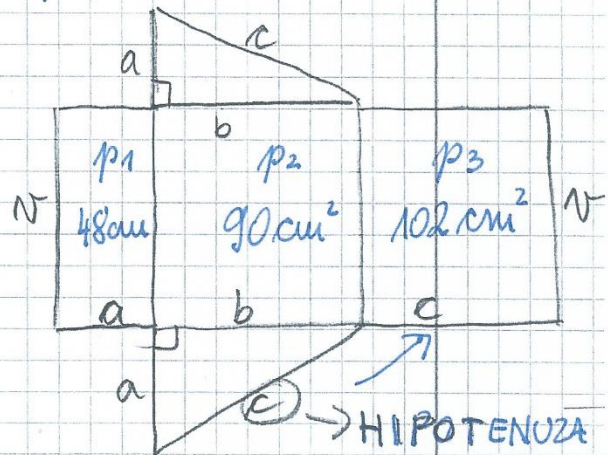 c
a
b
p1 p2 p3
v 48cm 90cm² 102cm² v
a b c
a
c → HIPOTENUZA